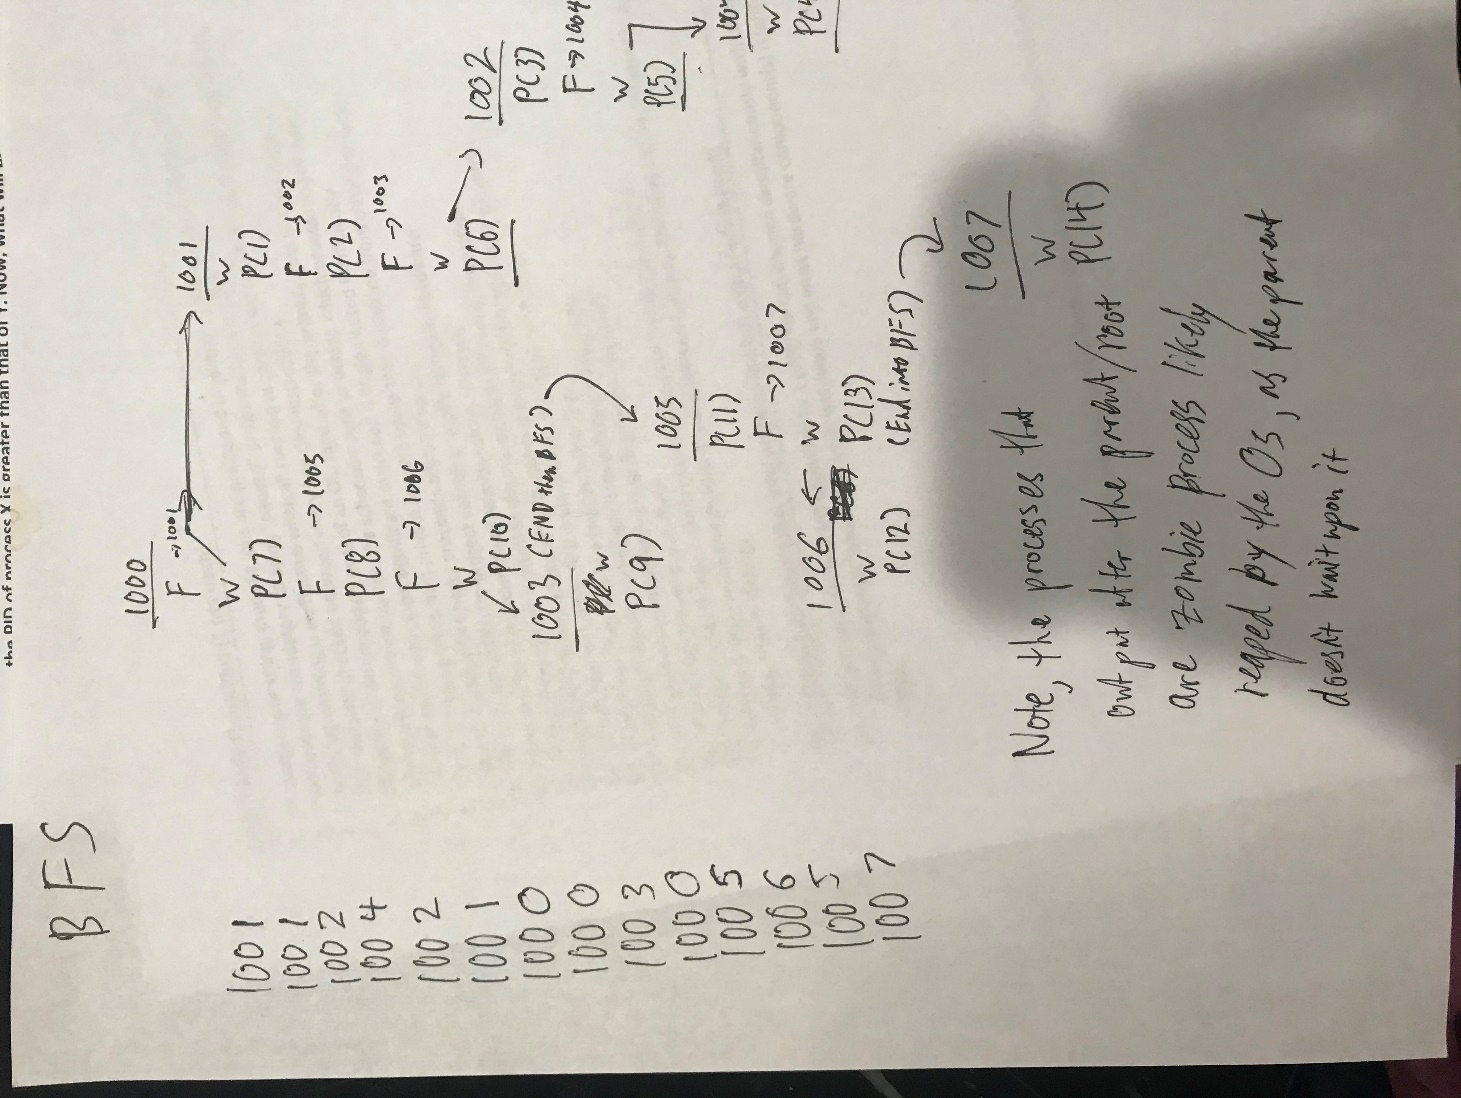 the PID of process X is greater than that of Y. Now, what will
BFS
1001
1001
1002
1004
1002
1001
1000
1000
1003
1000
1005
1006
1005
1007
1000
F →1001
W
P(7)
F →1005
P(8)
F →1006
W
P(10)
1003 (END then BFS)
W
P(9)
1001
W
P(1)
F →1002
P(2)
F →1003
W
P(6)
1002
P(3)
F →1004
W
P(5)
W
1005
P(11)
F →1007
W
P(13)
(End into BFS)
1006 ←
W
P(12)
1007
W
P(14)
Note, the processes that
output after the parent/root
are zombie process likely
reaped by the OS, as the parent
doesn't wait upon it